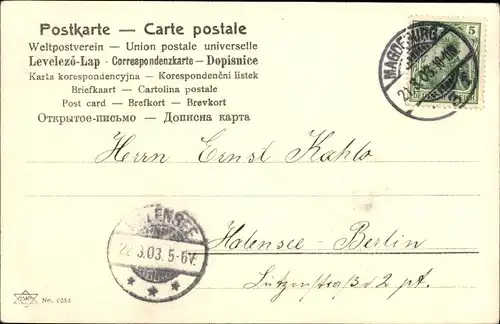 Postkarte — Carte postale
Weltpostverein — Union postale universelle
Levelező-Lap - Correspondenzkarte — Dopisnice
Karta korespondencyjna — Korespondenční listek
Briefkaart — Cartolina postale
Post card — Brefkort — Brevkort
Открытое-письмо — Дописна карта
MAGDEBURG
5
Herrn Ernst Kahlo
HALENSEE
22.3.03. 5-6V.
Halensee-Berlin
2 pt.
No.